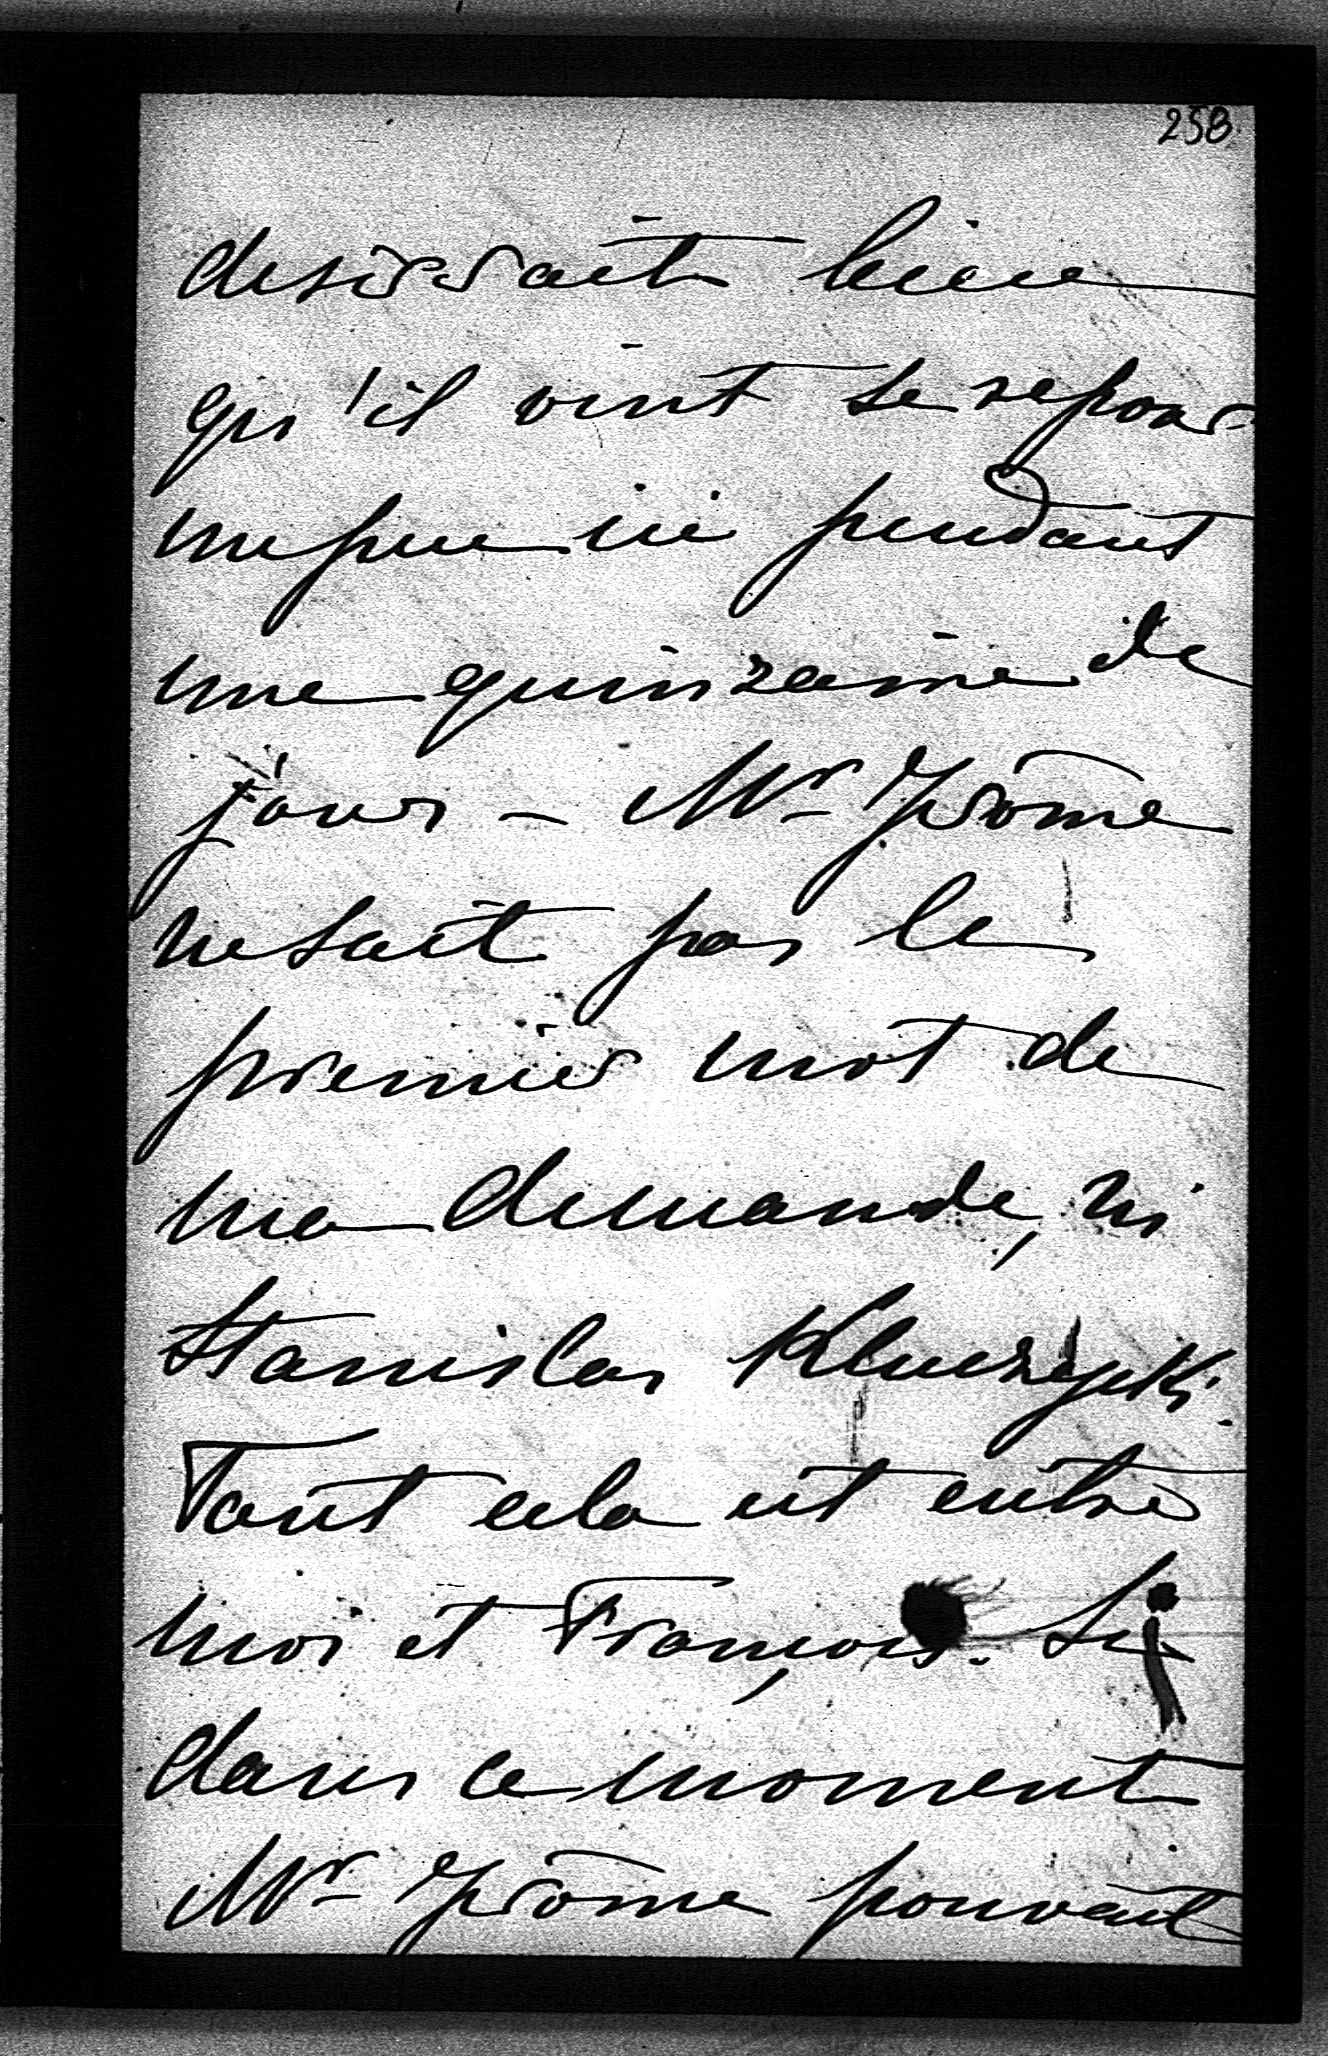 258
desirerait bien
qu'il vint se reposer
un peu ici pendant
une quinzaine de
jours — Mr Jérôme
ne sait pas le
premier mot de
ma demande, ni
Stanislas Kluczycki.
Tout cela est entre
moi et François. Si
dans ce moment
Mr Jérôme pouvait